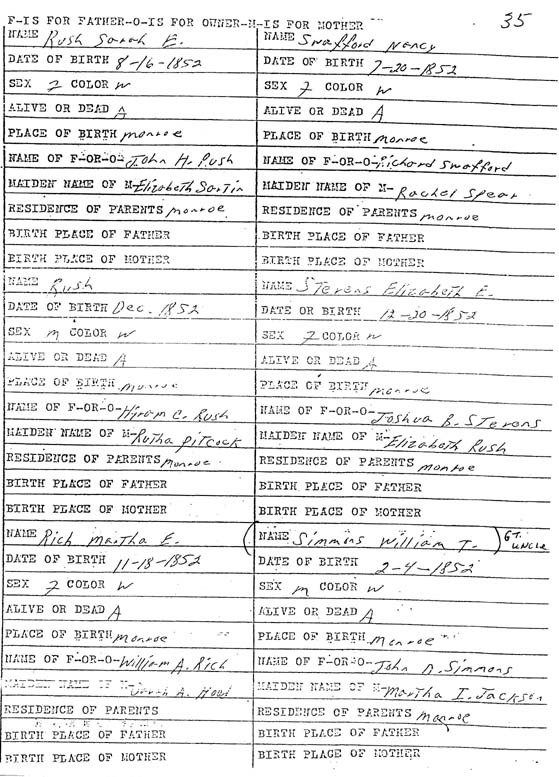 F-IS FOR FATHER-O-IS FOR OWNER-M-IS FOR MOTHER 35
NAME Rush Sarah E.
DATE OF BIRTH 8-16-1852
SEX F COLOR W
ALIVE OR DEAD A
PLACE OF BIRTH monroe
NAME OF F-OR-O- John H. Rush
MAIDEN NAME OF M- Elizabeth Sartin
RESIDENCE OF PARENTS monroe
BIRTH PLACE OF FATHER
BIRTH PLACE OF MOTHER
NAME Rush
DATE OF BIRTH Dec. 1852
SEX m COLOR W
ALIVE OR DEAD A
PLACE OF BIRTH monroe
NAME OF F-OR-O- Hiram C. Rush
MAIDEN NAME OF M- Rutha Pitcock
RESIDENCE OF PARENTS monroe
BIRTH PLACE OF FATHER
BIRTH PLACE OF MOTHER
NAME Rich Martha E.
DATE OF BIRTH 11-18-1852
SEX F COLOR W
ALIVE OR DEAD A
PLACE OF BIRTH monroe
NAME OF F-OR-O- William A. Rich
MAIDEN NAME OF M- A.
RESIDENCE OF PARENTS
BIRTH PLACE OF FATHER
BIRTH PLACE OF MOTHER
NAME Swafford Nancy
DATE OF BIRTH 7-20-1852
SEX F COLOR W
ALIVE OR DEAD A
PLACE OF BIRTH monroe
NAME OF F-OR-O- Richard Swafford
MAIDEN NAME OF M- Rachel Spear
RESIDENCE OF PARENTS monroe
BIRTH PLACE OF FATHER
BIRTH PLACE OF MOTHER
NAME Stevens Elizabeth E.
DATE OR BIRTH 12-20-1852
SEX F COLOR W
ALIVE OR DEAD A
PLACE OF BIRTH monroe
NAME OF F-OR-O- Joshua B. Stevens
MAIDEN NAME OF M- Elizabeth Rush
RESIDENCE OF PARENTS monroe
BIRTH PLACE OF FATHER
BIRTH PLACE OF MOTHER
(NAME Simmons William T.) GT. UNCLE
DATE OF BIRTH 2-4-1852
SEX m COLOR W
ALIVE OR DEAD A
PLACE OF BIRTH monroe
NAME OF F-OR-O- John D. Simmons
MAIDEN NAME OF M- Martha I. Jackson
RESIDENCE OF PARENTS monroe
BIRTH PLACE OF FATHER
BIRTH PLACE OF MOTHER